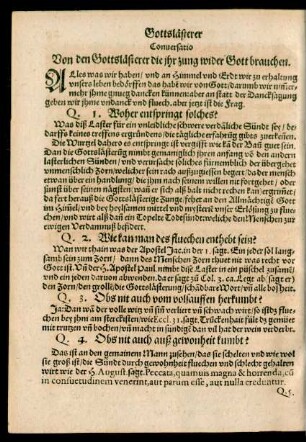 Gottslästerer
Conuersatio
Von den Gottslästerer die jhr zung wider Gott brauchen.
Alles was wir haben/ vnd an Himmel vnd Erdt wir zu erhaltung
vnsers leben bedörffen das habt wir von Gott/ darumb wir nimmer-
mehr jhme gnueg dancken künnen: aber an statt der Dancksagung
geben wir jhme vndanck vnd fluech. aber jetzt ist die Frag.
Q. 1. Woher entspringt solches?
Was diß Laster für ein vnleidliche schwere verdäliche Sünde sey/ be-
darffs keines treffens ergründens/ die tägliche erfahrüg gibts zuerkeñen.
Die Wurtzel daher es entspringt ist vergifft wie kã der Bañ guet sein.
Dan die Gottslästerũg nimbt gemainglich jhren anfang võ den andern
lasterlichen Sünden/ vnd vervrsacht solches fürnemblich der übergehet
vnmenschlich Zorn/ welcher sein rach auszugiessen begert/ da der mensch
etwan über ein handlung/ die jhm nach seim willen nit fortgehet/ oder
sünst über seinen nägsten/ wan er sich alß bald nicht rechen kan/ erhitzet/
das fert herauß die lästerige Zunge fehet an den Allmächtige Gott
im Himel/ vnd die heylsamen mittel vnd werckzeig vnser Erlösung zu
fluechen/ vnd wirt alß dañ ein Topelte Todtsünd welche den Menschen zur
ewigen Verdamnuß befödert.
Q. 2. Wie kan man des fluechen enthebt sein?
Wan wir thain was der Apostel Jac. in der 1. sagt. Ein jeder sol lang-
samb sein zum Zorn/ dann des Menschen Zorn thuet nit was recht vor
Gott ist. Vñ der H. Apostel Paul. nimbt dise Laster in ein püschel zusamẽ/
vnd ein jeden daruon abwenden. Dar sagt zũ Col. 3. ca. Lege ab sagt er)
den Zorn/ den grolle/ die Gottslästerung/ schãdbare Wort/ võ all ewrẽ hertz.
Q. 3. Obs nit auch vom volsauffen herkumbt?
Ja: Dan wã der volle witz vñ sin verliert vñ schwach wirt/ so ist dz flue-
chen bey jhm am sterckesten/ wie Eccl. 31. sagt. Trückenheit füle dz gemüet
mit trutzen vñ bochen/ vñ macht in sündigt dan vil hat der wein verderbt.
Q. 4. Obs nit auch auß gewonheit kumbt?
Das ist an den gemainem Mann zusehen/ das sie schelten vnd wie wol
sie groß ist/ die Sünde durch gewohnheit fluechen vnd schlecht gehalten
wirt wie der H. August. sagt. Peccata quamuis magna & horrenda, cũ
in consuetudinem venerint, aut parum esse, aut nulla creduntur.
Q. 5.